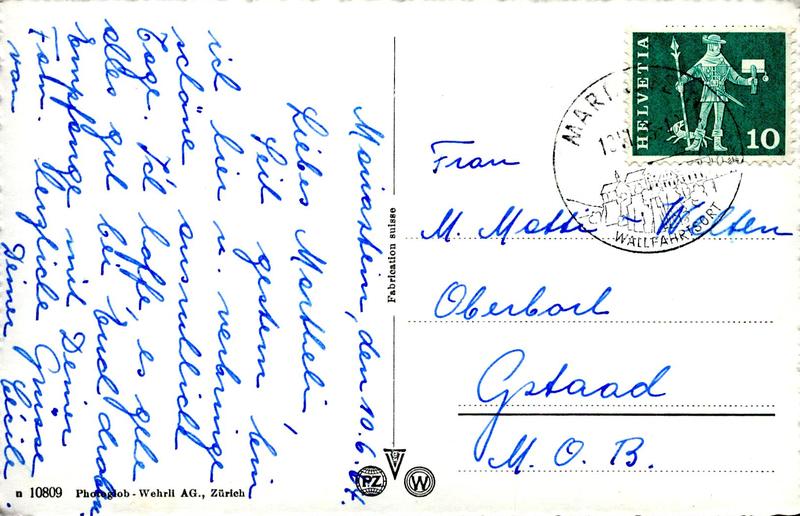 Mariastein, den 10.6.64.
Liebes Martheli,
Seit gestern bin
ich hier u. verbringe
schöne ausruhliche
Tage. Ich hoffe, es gehe
alles gut bei Euch droben.
Empfange mit Deiner
Fam. herzliche Grüsse
von Deiner Cécile.
Fabrication suisse
HELVETIA
10
MARIASTEIN
WALLFAHRTSORT
Frau
M. Matti - Welten
Oberbort
Gstaad
M. O. B.
PZ
W
n 10809 Photoglob - Wehrli AG., Zürich